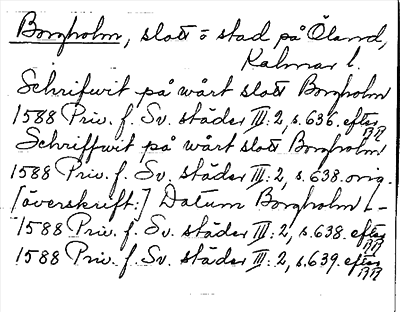 Borgholm, slott o stad på Öland,
Kalmar l.
Schrifwit på wårt slott Borgholm
1588 Priv. f. Sv. städer III: 2, s. 636. efter RR
Schriffwit på wårt slott Borgholm
1588 Priv. f. Sv. städer III: 2, s. 638. orig.
[överskrift:] Datum Borgholm -
1588 Priv. f. Sv. städer III: 2, s. 638. efter RR
1588 Priv. f. Sv. städer III: 2, s. 639. efter RR